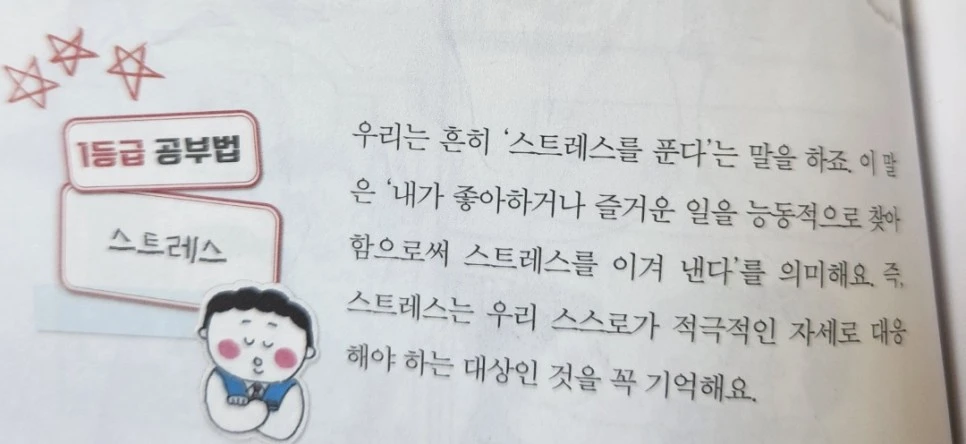 1등급 공부법
스트레스
우리는 흔히 ‘스트레스를 푼다’는 말을 하죠. 이 말
은 ‘내가 좋아하거나 즐거운 일을 능동적으로 찾아
함으로써 스트레스를 이겨 낸다’를 의미해요. 즉,
스트레스는 우리 스스로가 적극적인 자세로 대응
해야 하는 대상인 것을 꼭 기억해요.